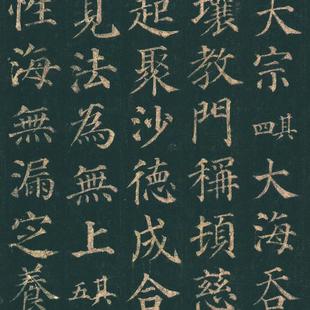 大宗其四大海吞
壤教門稱頓慈
起聚沙德成合
見法為無上其五
性海無漏㝎養